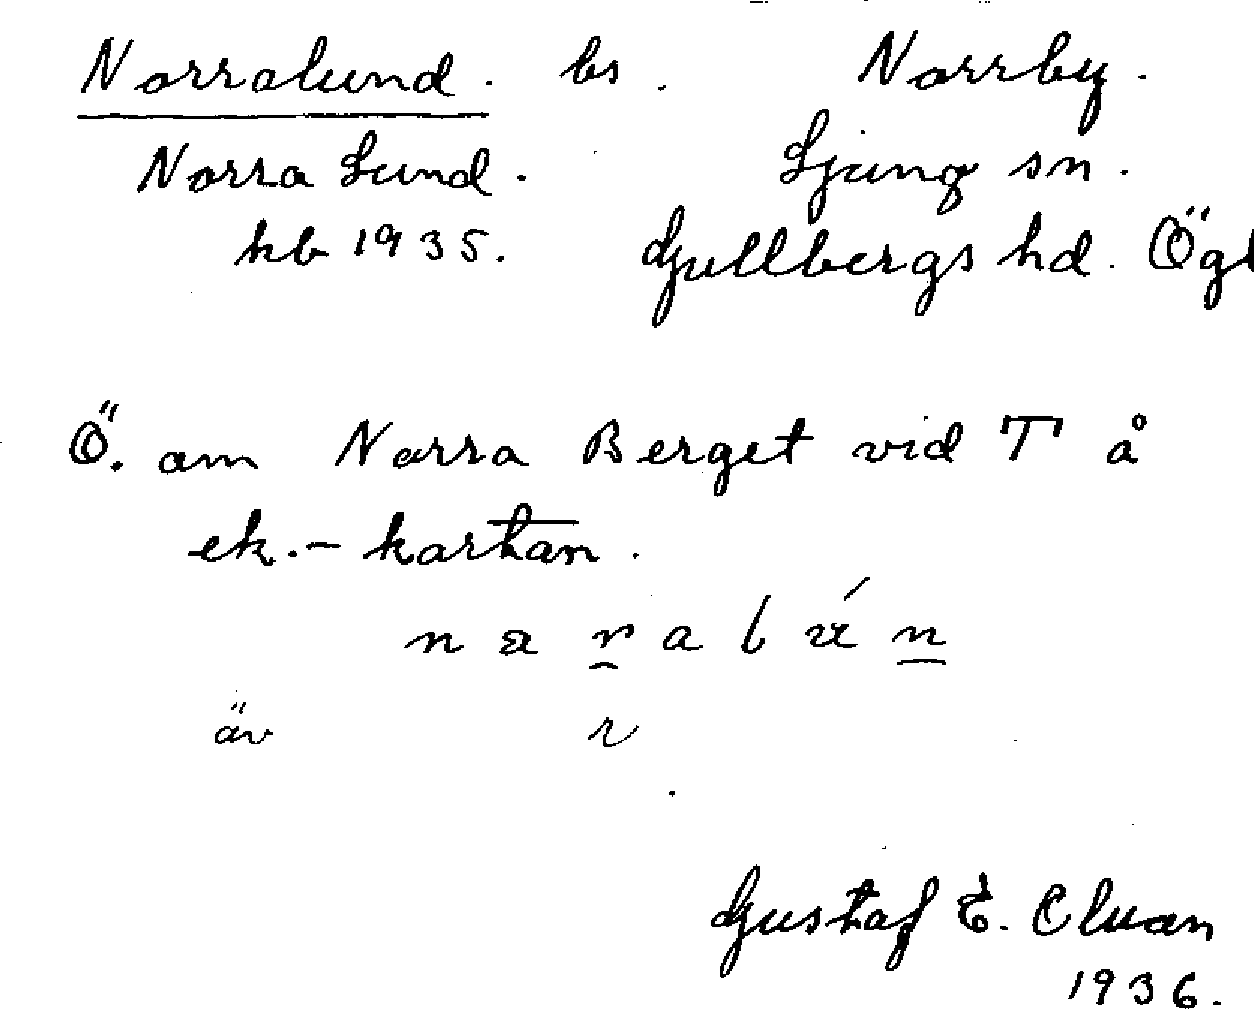 Norralund. bs. Norrby.
Norra Lund. Ljung sn.
hb 1935. Gullbergs hd. Ögl
Ö. om Norra Berget vid T å
ek.-kartan.
äv r
Gustaf E. Cluan
1936.